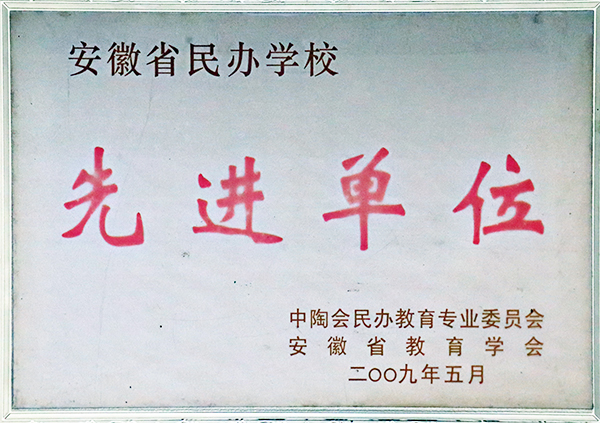 安徽省民办学校
先进单位
中陶会民办教育专业委员会
安徽省教育学会
二〇〇九年五月